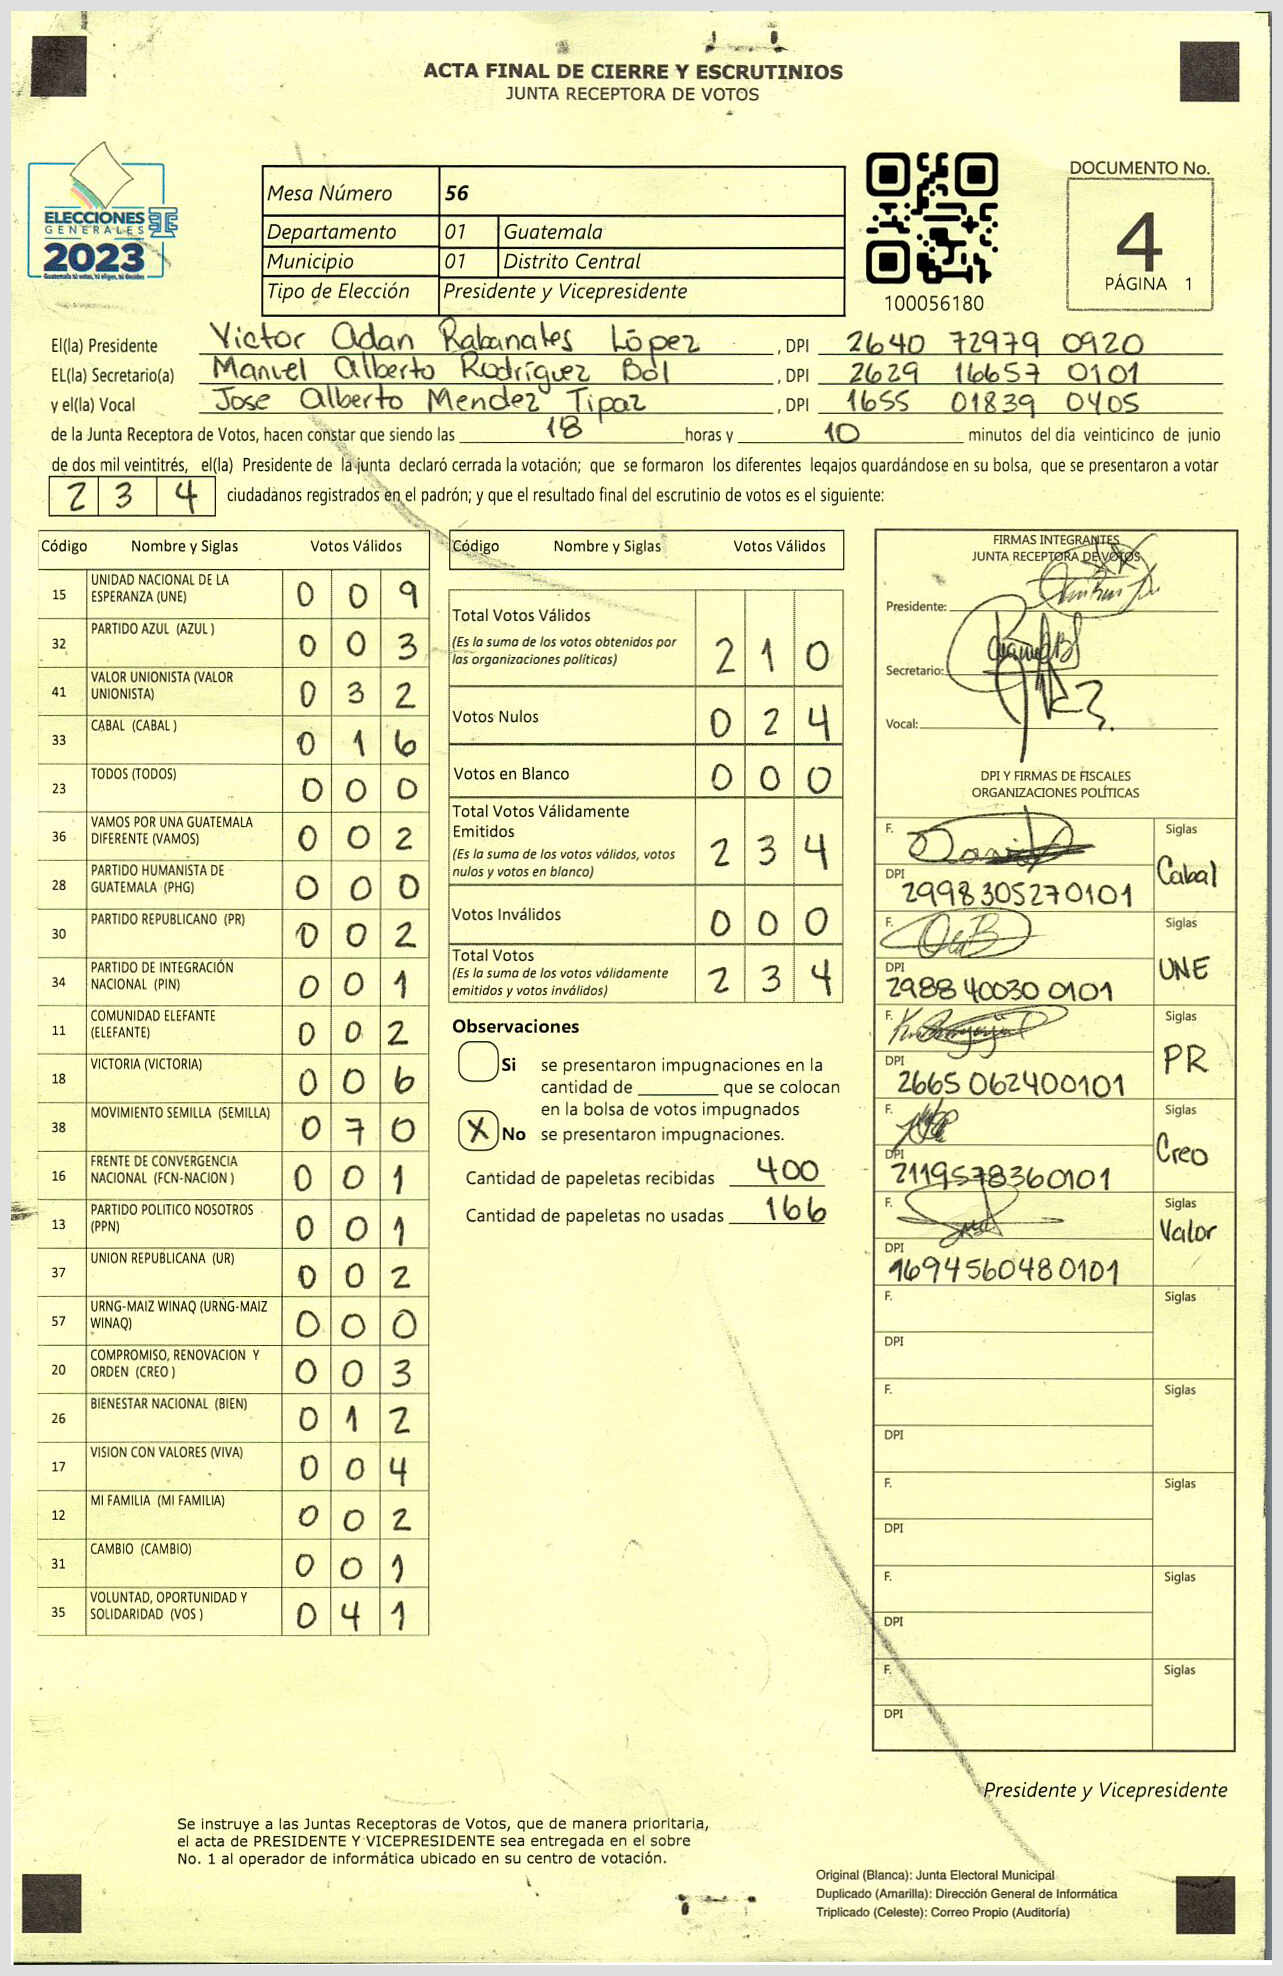 ACTA FINAL DE CIERRE Y ESCRUTINIOS
JUNTA RECEPTORA DE VOTOS
ELECCIONES
GENERALES
2023
Guatemala tú votas, tú eliges, tú decides
Mesa Número 56
Departamento 01 Guatemala
Municipio 01 Distrito Central
Tipo de Elección Presidente y Vicepresidente
100056180
DOCUMENTO No.
4
PÁGINA 1
El(la) Presidente Victor Adan Rabanales López, DPI 2640 72979 0920
EL(la) Secretario(a) Manuel Alberto Rodríguez Bol, DPI 2629 16657 0101
y el(la) Vocal Jose Alberto Mendez Tipaz, DPI 1655 01839 0405
de la Junta Receptora de Votos, hacen constar que siendo las 18 horas y 10 minutos del día veinticinco de junio
de dos mil veintitrés, el(la) Presidente de la junta declaró cerrada la votación; que se formaron los diferentes legajos guardándose en su bolsa, que se presentaron a votar
234 ciudadanos registrados en el padrón; y que el resultado final del escrutinio de votos es el siguiente:
Código Nombre y Siglas Votos Válidos
15 UNIDAD NACIONAL DE LA ESPERANZA (UNE) 009
32 PARTIDO AZUL (AZUL ) 003
41 VALOR UNIONISTA (VALOR UNIONISTA) 032
33 CABAL (CABAL ) 016
23 TODOS (TODOS) 000
36 VAMOS POR UNA GUATEMALA DIFERENTE (VAMOS) 002
28 PARTIDO HUMANISTA DE GUATEMALA (PHG) 000
30 PARTIDO REPUBLICANO (PR) 002
34 PARTIDO DE INTEGRACIÓN NACIONAL (PIN) 001
11 COMUNIDAD ELEFANTE (ELEFANTE) 002
18 VICTORIA (VICTORIA) 006
38 MOVIMIENTO SEMILLA (SEMILLA) 070
16 FRENTE DE CONVERGENCIA NACIONAL (FCN-NACION ) 001
13 PARTIDO POLITICO NOSOTROS (PPN) 001
37 UNION REPUBLICANA (UR) 002
57 URNG-MAIZ WINAQ (URNG-MAIZ WINAQ) 000
20 COMPROMISO, RENOVACION Y ORDEN (CREO ) 003
26 BIENESTAR NACIONAL (BIEN) 012
17 VISION CON VALORES (VIVA) 004
12 MI FAMILIA (MI FAMILIA) 002
31 CAMBIO (CAMBIO) 001
35 VOLUNTAD, OPORTUNIDAD Y SOLIDARIDAD (VOS ) 041
Código Nombre y Siglas Votos Válidos
Total Votos Válidos
(Es la suma de los votos obtenidos por
las organizaciones políticas) 210
Votos Nulos 024
Votos en Blanco 000
Total Votos Válidamente
Emitidos
(Es la suma de los votos válidos, votos
nulos y votos en blanco) 234
Votos Inválidos 000
Total Votos
(Es la suma de los votos válidamente
emitidos y votos inválidos) 234
Observaciones
Si se presentaron impugnaciones en la
cantidad de ________ que se colocan
en la bolsa de votos impugnados
X No se presentaron impugnaciones.
Cantidad de papeletas recibidas 400
Cantidad de papeletas no usadas 166
FIRMAS INTEGRANTES
JUNTA RECEPTORA DE VOTOS
Presidente:
Secretario:
Vocal:
DPI Y FIRMAS DE FISCALES
ORGANIZACIONES POLÍTICAS
F. Siglas
Cabal
DPI
2998305270101
F. Siglas
UNE
DPI
2988 40030 0101
F. Siglas
PR
DPI
2665 062400101
F. Siglas
Creo
DPI
2119578360101
F. Siglas
Valor
DPI
1694560480101
F. Siglas
DPI
F. Siglas
DPI
F. Siglas
DPI
F. Siglas
DPI
F. Siglas
DPI
Presidente y Vicepresidente
Se instruye a las Juntas Receptoras de Votos, que de manera prioritaria,
el acta de PRESIDENTE Y VICEPRESIDENTE sea entregada en el sobre
No. 1 al operador de informática ubicado en su centro de votación.
Original (Blanca): Junta Electoral Municipal
Duplicado (Amarilla): Dirección General de Informática
Triplicado (Celeste): Correo Propio (Auditoría)